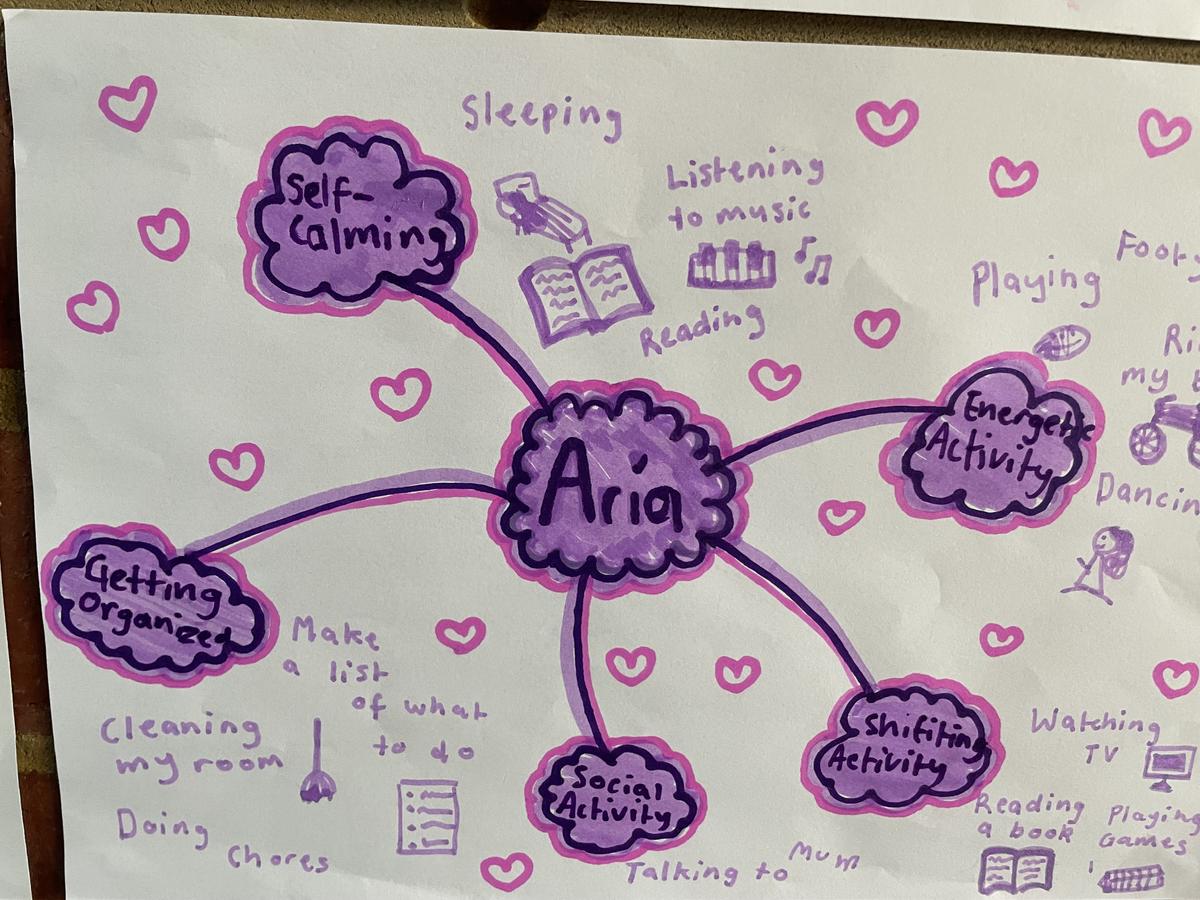 Sleeping
Self-
Calming
Listening
to music
Reading
Playing
Energetic
Activity
my
Aria
Getting
Organized
Make
a list
of what
to do
Cleaning
my room
Doing
Chores
Social
Activity
Talking to Mum
Shifiting
Activity
Watching
TV
Reading
a book
Playing
Games